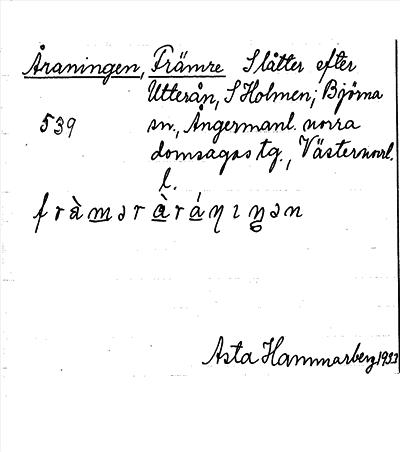 Åraningen, Främre Slåtter efter
Utterån, S Holmen; Björna
539 sn., Ångermanl. norra
domsagas tg., Västernorrl.
l.
fràməràráƞıŋən
Asta Hammarberg 1933